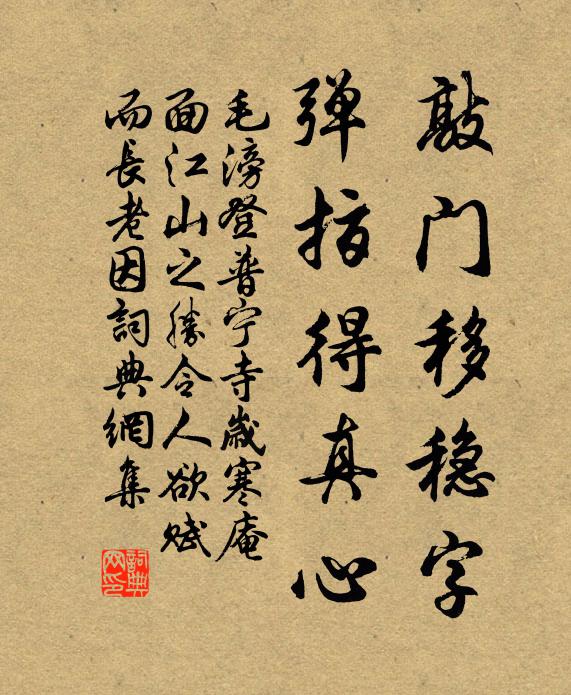 敲门移稳字
弹指得真心
毛滂登普宁寺歲寒庵
面江山之勝令人欲赋
而長老因詞典網集
詞典网印